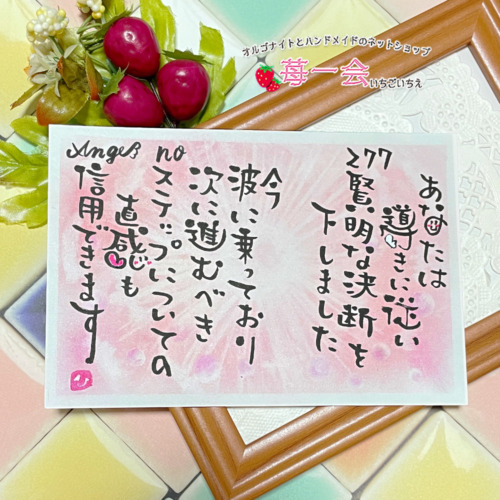 オルゴナイトとハンドメイドのネットショップ
苺一会
いちごいちえ
あなたは
導きに従い
277
賢明な決断を
下しました
今
波に乗っており
次に進むべき
ステップについての
直感も
信用できます
Angel no